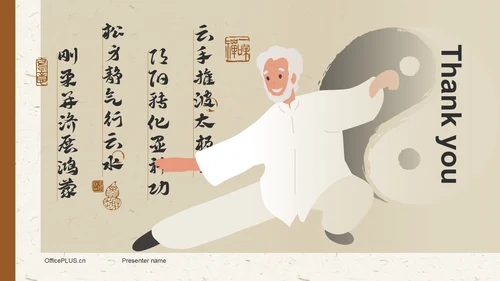 云手推波太极
阴阳转化显神功
松方静气行云水
刚柔并济展鸿蒙
Thank you
OfficePLUS.cn
Presenter name